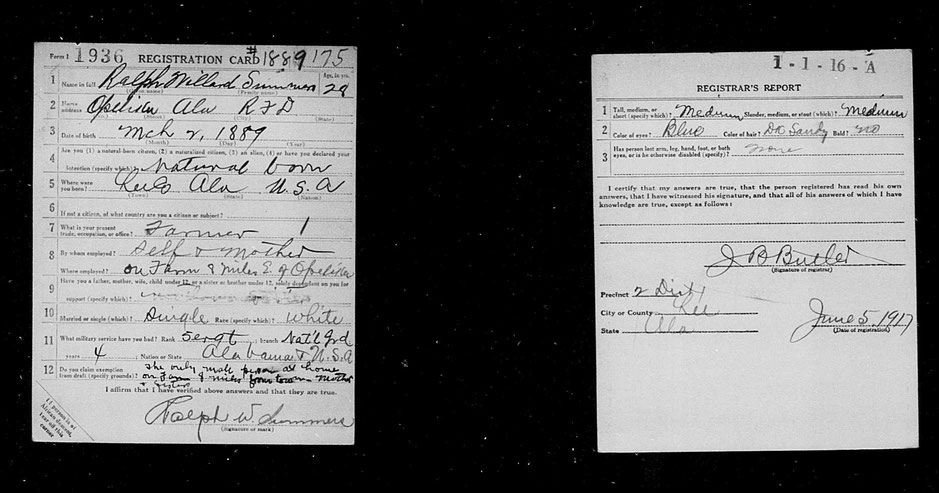 Form 1 1936 REGISTRATION CARD #1889 175
1 Name in full Ralph Willard Summers 28 Age, in yrs.
(Given name) (Family name)
2 Home address Opelika Ala RFD
(No.) (Street) (City) (State)
3 Date of birth Mch 2, 1889
(Month) (Day) (Year)
4 Are you (1) a natural-born citizen, (2) a naturalized citizen, (3) an alien, (4) or have you declared your
intention (specify which)? Natural born
5 Where were you born? Lee Co Ala U.S.A
(Town) (State) (Nation)
6 If not a citizen, of what country are you a citizen or subject?
7 What is your present trade, occupation, or office? Farmer 1
8 By whom employed? Self & Mother
Where employed? on Farm 8 miles E. of Opelika
9 Have you a father, mother, wife, child under 12, or a sister or brother under 12, solely dependent on you for
support (specify which)?
10 Married or single (which)? Single Race (specify which)? White
11 What military service have you had? Rank Sergt ; branch Nat'l Grd
years 4 ; Nation or State Alabama & U.S.A
12 Do you claim exemption from draft (specify grounds)? the only male person at home
on Farm 8 miles from town Mother
& sisters
I affirm that I have verified above answers and that they are true.
Ralph W. Summers
(Signature or mark)
If person is of
African descent,
tear off this
corner
1-1-16-A
REGISTRAR'S REPORT
1 Tall, medium, or short (specify which)? Medium Slender, medium, or stout (which)? Medium
2 Color of eyes? Blue Color of hair? Dk Sandy Bald? No
3 Has person lost arm, leg, hand, foot, or both
eyes, or is he otherwise disabled (specify)? None
I certify that my answers are true, that the person registered has read his own
answers, that I have witnessed his signature, and that all of his answers of which I have
knowledge are true, except as follows:
J B Butler
(Signature of registrar)
Precinct 2 Dist 1
City or County Lee
State Ala
June 5, 1917
(Date of registration)